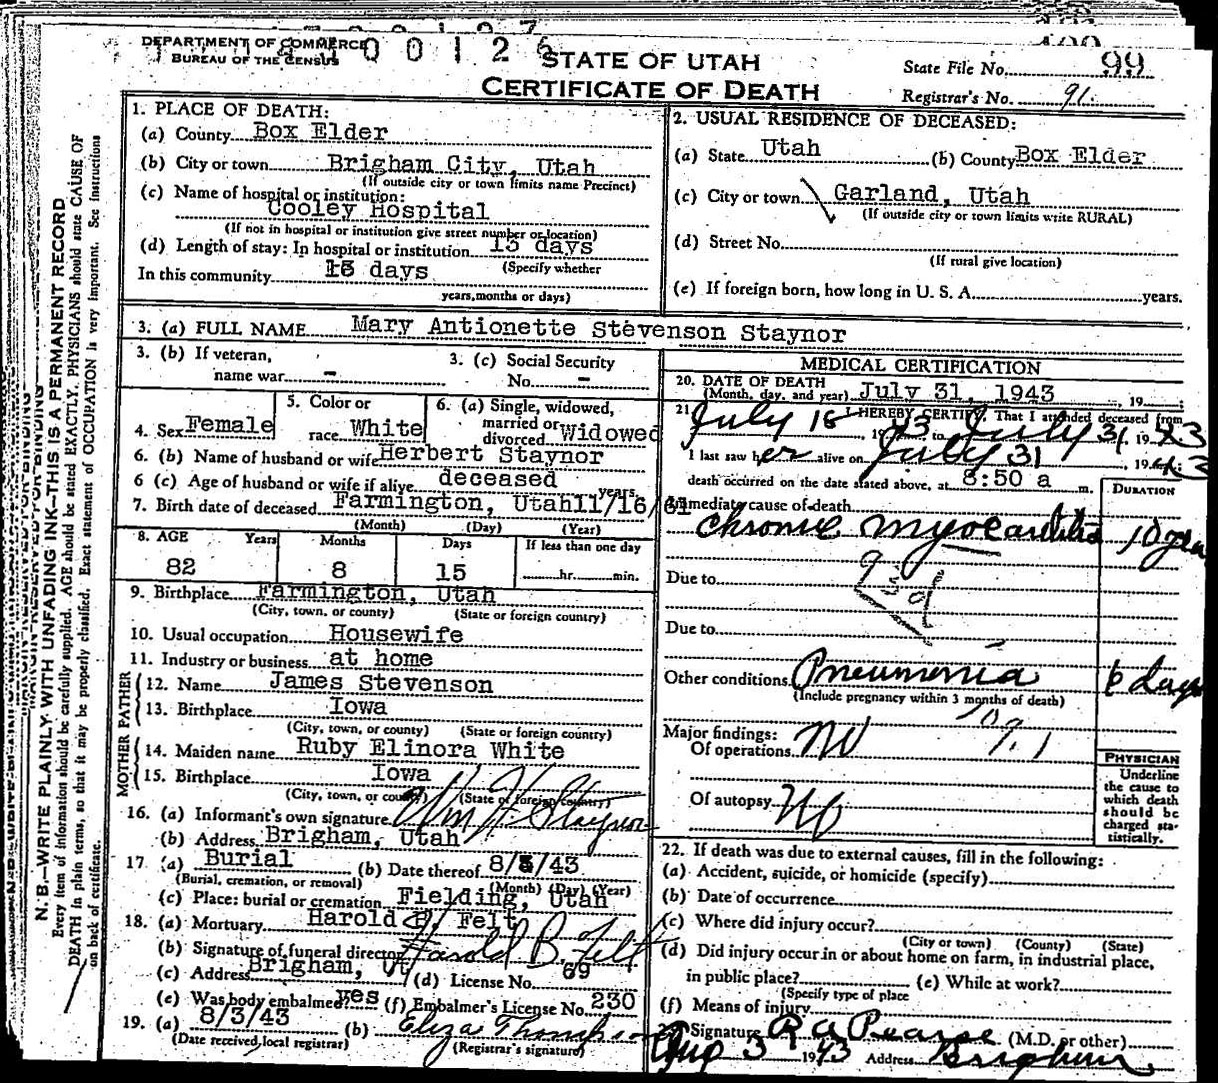 DEPARTMENT OF COMMERCE
BUREAU OF THE CENSUS
0 0 1 2 6
STATE OF UTAH
CERTIFICATE OF DEATH
State File No. 99
Registrar's No. 91
1. PLACE OF DEATH:
(a) County Box Elder
(b) City or town Brigham City, Utah
(If outside city or town limits name Precinct)
(c) Name of hospital or institution:
Cooley Hospital
(If not in hospital or institution give street number or location)
(d) Length of stay: In hospital or institution 13 days
(Specify whether
In this community 13 days
years, months or days)
2. USUAL RESIDENCE OF DECEASED:
(a) State Utah (b) County Box Elder
(c) City or town Garland, Utah
(If outside city or town limits write RURAL)
(d) Street No.
(If rural give location)
(e) If foreign born, how long in U. S. A. years.
3. (a) FULL NAME Mary Antionette Stevenson Staynor
3. (b) If veteran,
name war -
3. (c) Social Security
No. -
4. Sex Female
5. Color or
race White
6. (a) Single, widowed,
married or
divorced Widowed
6. (b) Name of husband or wife Herbert Staynor
6 (c) Age of husband or wife if alive deceased years
7. Birth date of deceased Farmington, Utah 11/16/61
(Month) (Day) (Year)
8. AGE Years Months Days If less than one day
82 8 15 hr. min.
9. Birthplace Farmington, Utah
(City, town, or county) (State or foreign country)
10. Usual occupation Housewife
11. Industry or business at home
FATHER
12. Name James Stevenson
13. Birthplace Iowa
(City, town, or county) (State or foreign country)
MOTHER
14. Maiden name Ruby Elinora White
15. Birthplace Iowa
(City, town, or county) (State or foreign country)
16. (a) Informant's own signature Wm H Staynor
(b) Address Brigham, Utah
17 (a) Burial (b) Date thereof 8/3/43
(Burial, cremation, or removal) (Month) (Day) (Year)
(c) Place: burial or cremation Fielding, Utah
18. (a) Mortuary Harold B. Felt
(b) Signature of funeral director Harold B. Felt
(c) Address Brigham, Ut (d) License No. 69
(e) Was body embalmed? yes (f) Embalmer's License No. 230
19. (a) 8/3/43 (b) Eliza Thompson
(Date received, local registrar) (Registrar's signature)
MEDICAL CERTIFICATION
20. DATE OF DEATH
(Month, day, and year) July 31, 1943, 19
21. I HEREBY CERTIFY, That I attended deceased from
July 18, 1943 to July 31, 1943
I last saw her alive on July 31, 1943
death occurred on the date stated above, at 8:50 a m.
DURATION
Immediate cause of death
Chronic myocarditis 10 years
Due to
93d
Due to
Other conditions Pneumonia 6 days
(Include pregnancy within 3 months of death)
109
Major findings:
Of operations No
Of autopsy No
PHYSICIAN
Underline
the cause to
which death
should be
charged sta-
tistically.
22. If death was due to external causes, fill in the following:
(a) Accident, suicide, or homicide (specify)
(b) Date of occurrence
(c) Where did injury occur?
(City or town) (County) (State)
(d) Did injury occur in or about home on farm, in industrial place,
in public place? (e) While at work?
(Specify type of place
(f) Means of injury
Signature R A Pearse (M.D. or other)
Aug 3 1943 Address Brigham
N. B.—WRITE PLAINLY WITH UNFADING INK—THIS IS A PERMANENT RECORD
Every item of information should be carefully supplied. AGE should be stated EXACTLY. PHYSICIANS should state CAUSE OF
DEATH in plain terms, so that it may be properly classified. Exact statement of OCCUPATION is very important. See instructions
on back of certificate.